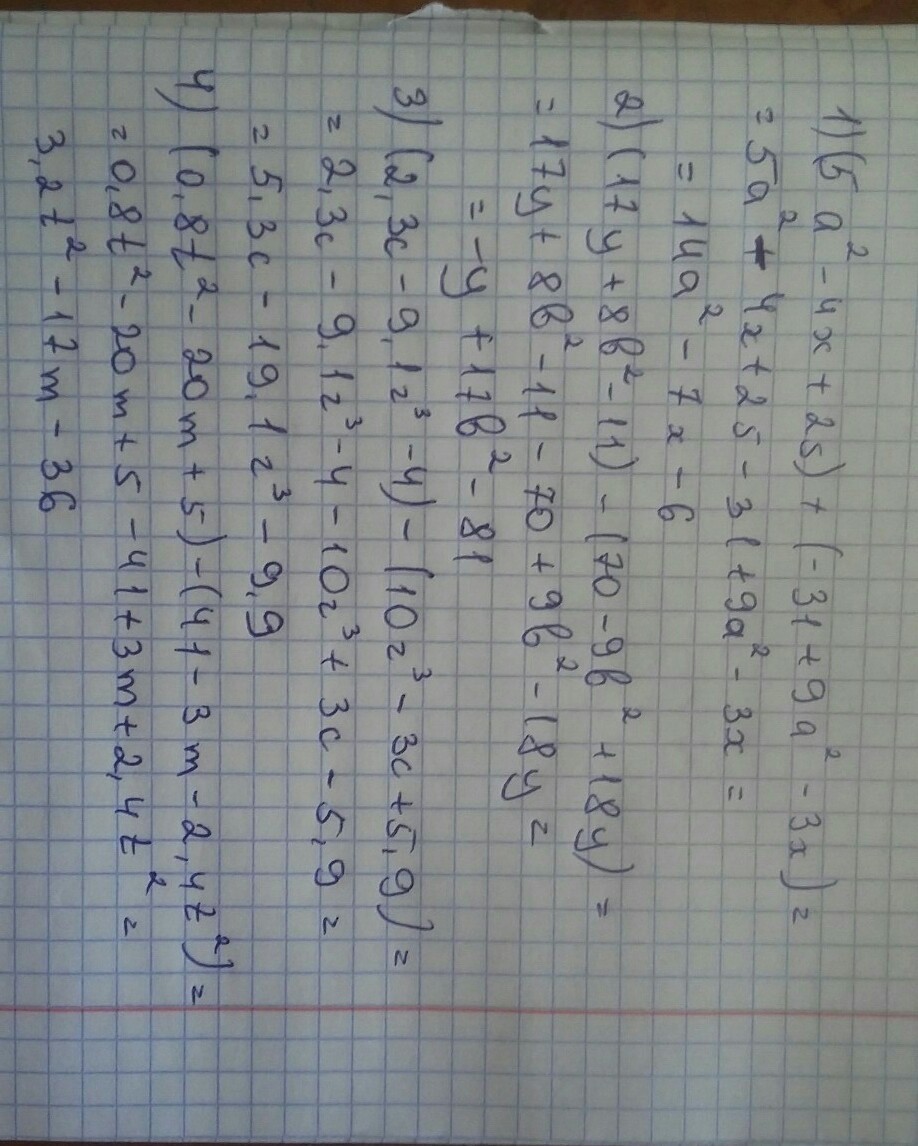 1) (5a² - 4x + 25) + (-31 + 9a² - 3x) =
= 5a² + 4x + 25 - 31 + 9a² - 3x =
= 14a² - 7x - 6
2) (17y + 8b² - 11) - (70 - 9b² + 18y) =
= 17y + 8b² - 11 - 70 + 9b² - 18y =
= -y + 17b² - 81
3) (2,3c - 9,1z³ - 4) - (10z³ - 3c + 5,9) =
= 2,3c - 9,1z³ - 4 - 10z³ + 3c - 5,9 =
= 5,3c - 19,1z³ - 9,9
4) (0,8t² - 20m + 5) - (41 - 3m - 2,4t²) =
= 0,8t² - 20m + 5 - 41 + 3m + 2,4t² =
3,2t² - 17m - 36